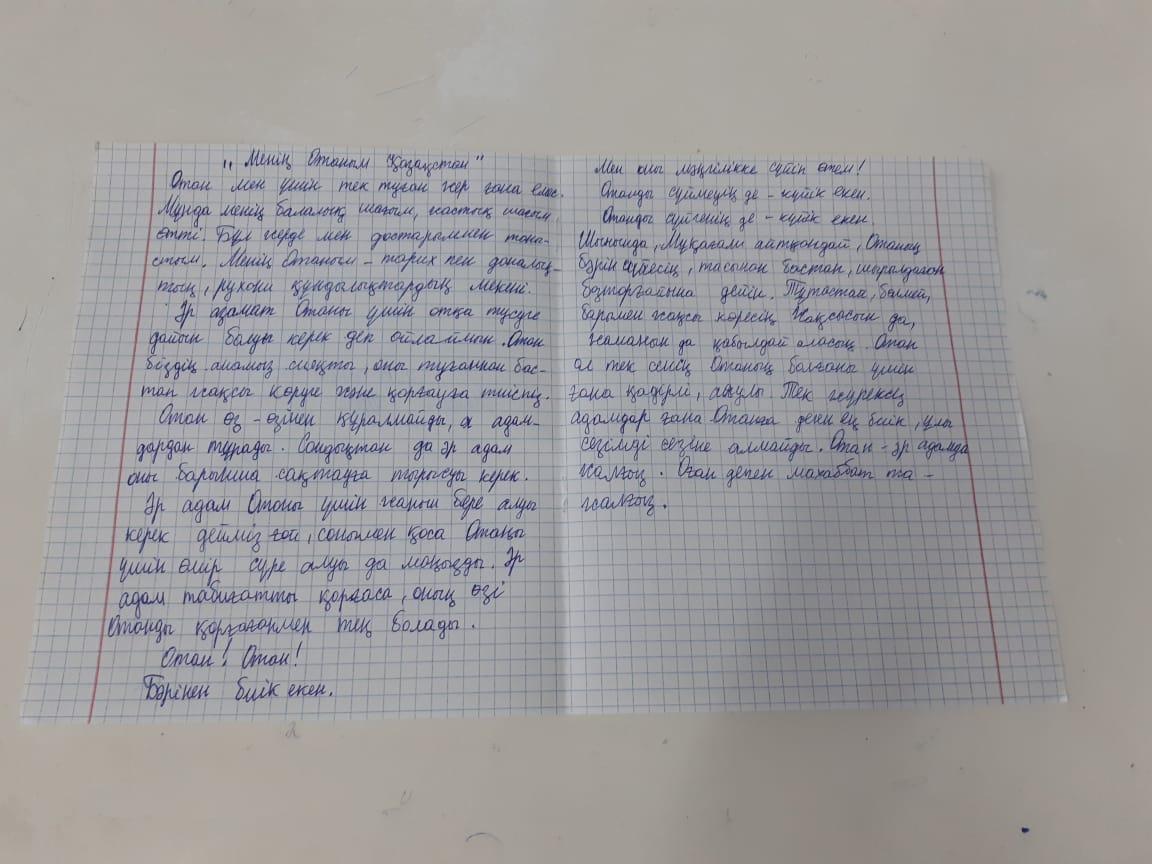 „ Менің Отаным Қазақстан "
Отан мен үшін тек туған жер ғана емес.
Мұнда менің балалық шағым, жастық шағым
өтті. Бұл жерде мен достарыммен таны-
стым. Менің Отаным – тарих пен даналық-
тың, рухани құндылықтардың мекені.
Әр азамат Отаны үшін отқа түсуге
дайын болуы керек деп ойлаймын. Отан
біздің анамыз сияқты, оны туғаннан бас-
тап жақсы көруге және қорғауға тиіспіз.
Отан өз - өзінен құралмайды, ол адам-
дардан тұрады. Сондықтан да әр адам
оны барынша сақтауға тырысуы керек.
Әр адам Отаны үшін жанын бере алуы
керек дейміз ғой, сонымен қоса Отаны
үшін өмір сүре алуы да маңызды. Әр
адам табиғатты қорғаса, оның өзі
Отанды қорғағанмен тең болады.
Отан! Отан!
Бәрінен биік екен.
Мен оны мәңгілікке сүйіп өтем!
Отанды сүймеуің де – күйік екен.
Отанды сүйгенің де – күйік екен.
Шынында, Мұқағали айтқандай, Отанның
бәрін сүйесің, тасынан бастап, шырылдаған
бозторғайына дейін. Тұтастай, бөлмей,
барымен жақсы көресің. Жақсысын да,
жаманын да қабылдай аласың. Отан
ол тек сенің Отаның болғаны үшін
ғана қадірлі, аяулы. Тек жүрексіз
адамдар ғана Отанға деген ең биік, ұлы
сезімді сезіне алмайды. Отан – әр адамда
жалғыз. Оған деген махаббат та –
жалғыз.